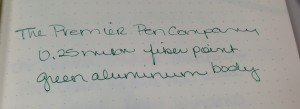 The Premier Pen Company
0.25 mm fiber point
green aluminum body